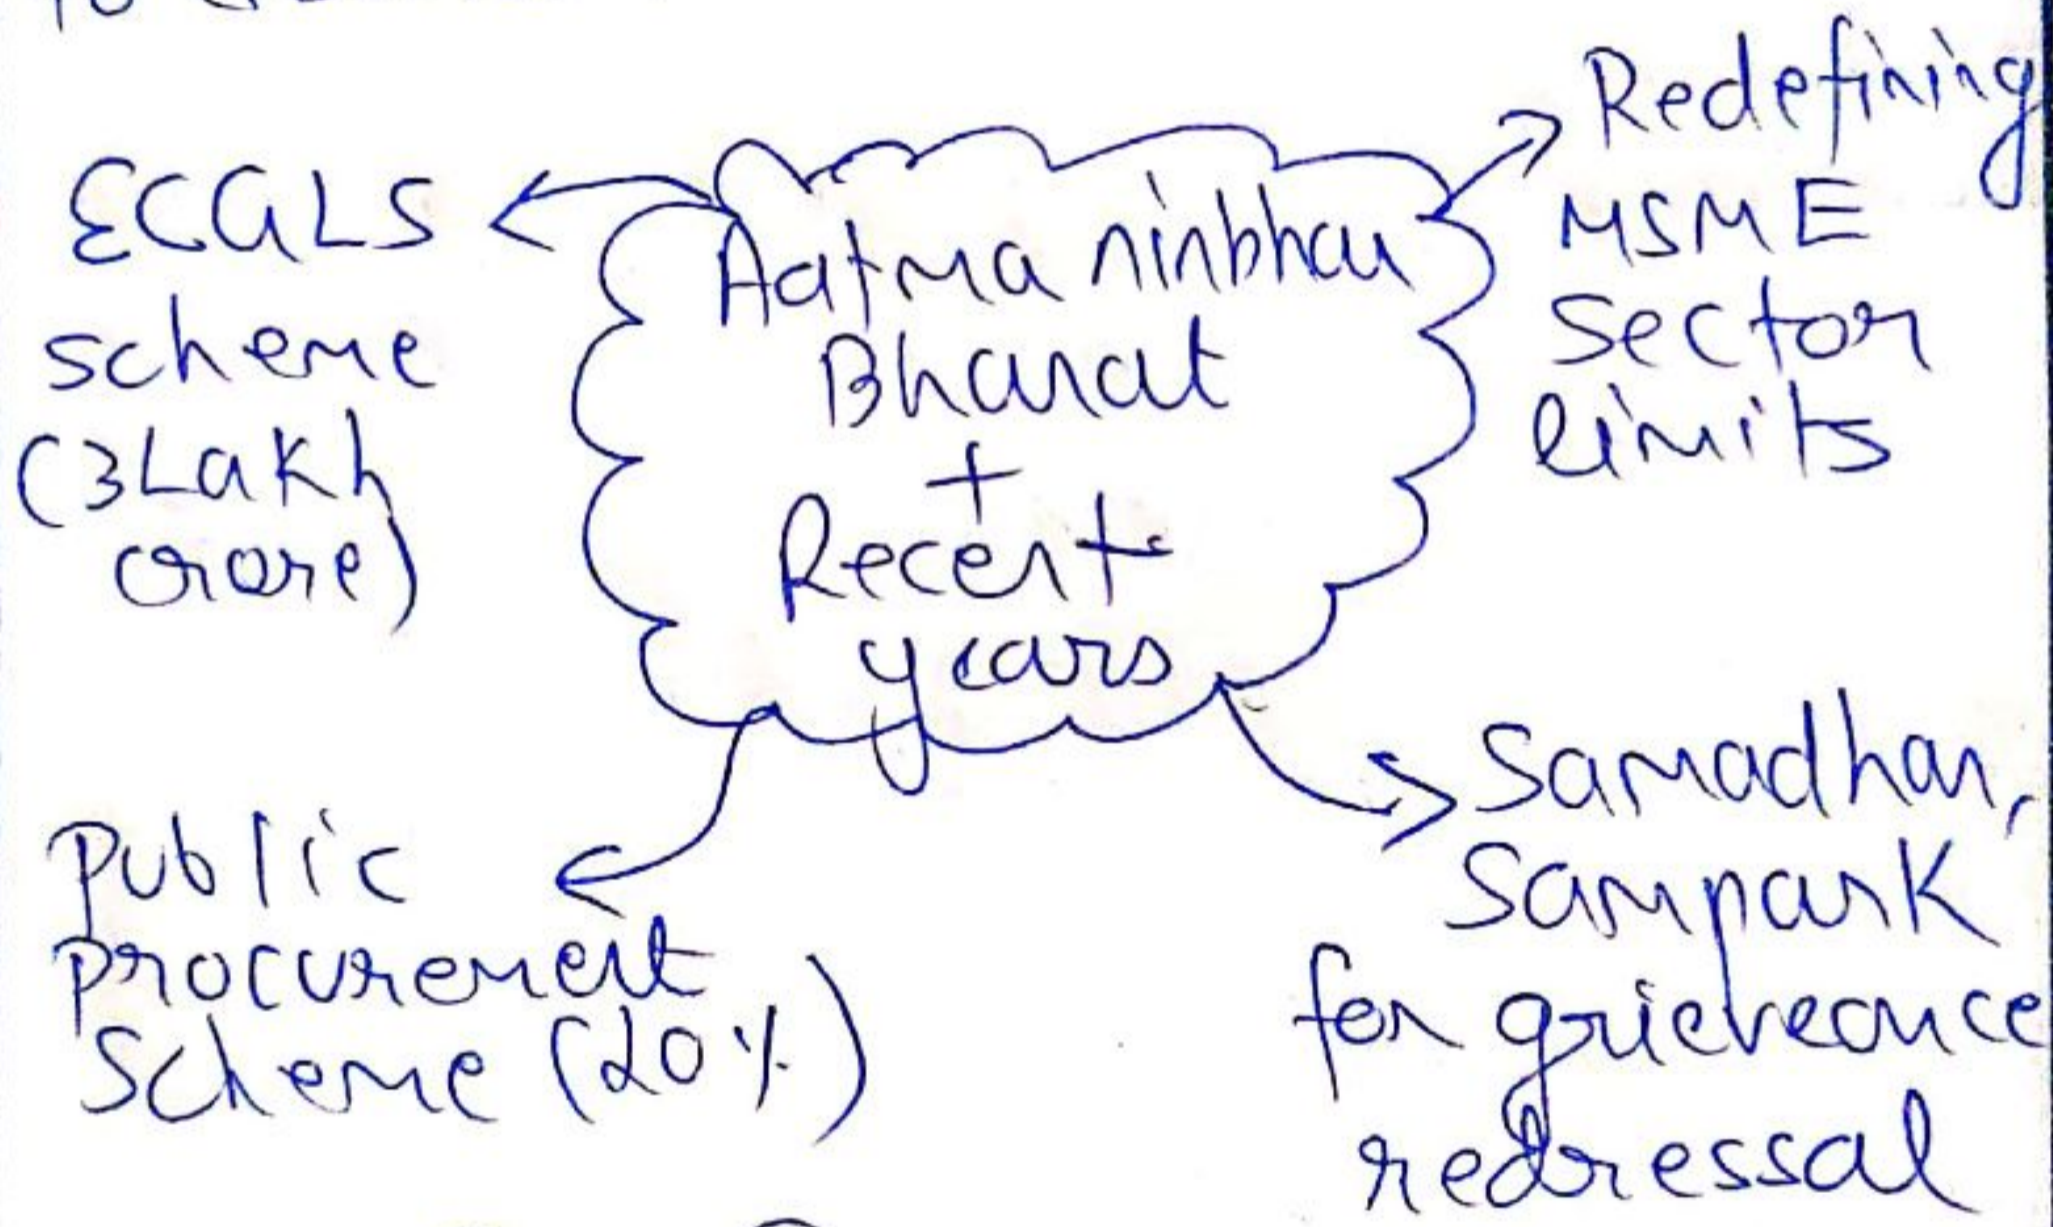 ECGLS
scheme
(3Lakh
crore)
Aatma nirbhar
Bharat
+
Recent
years
Redefining
MSME
Sector
limits
Public
procurement
Scheme (20%)
Samadhan,
Sampark
for grieveance
redressal